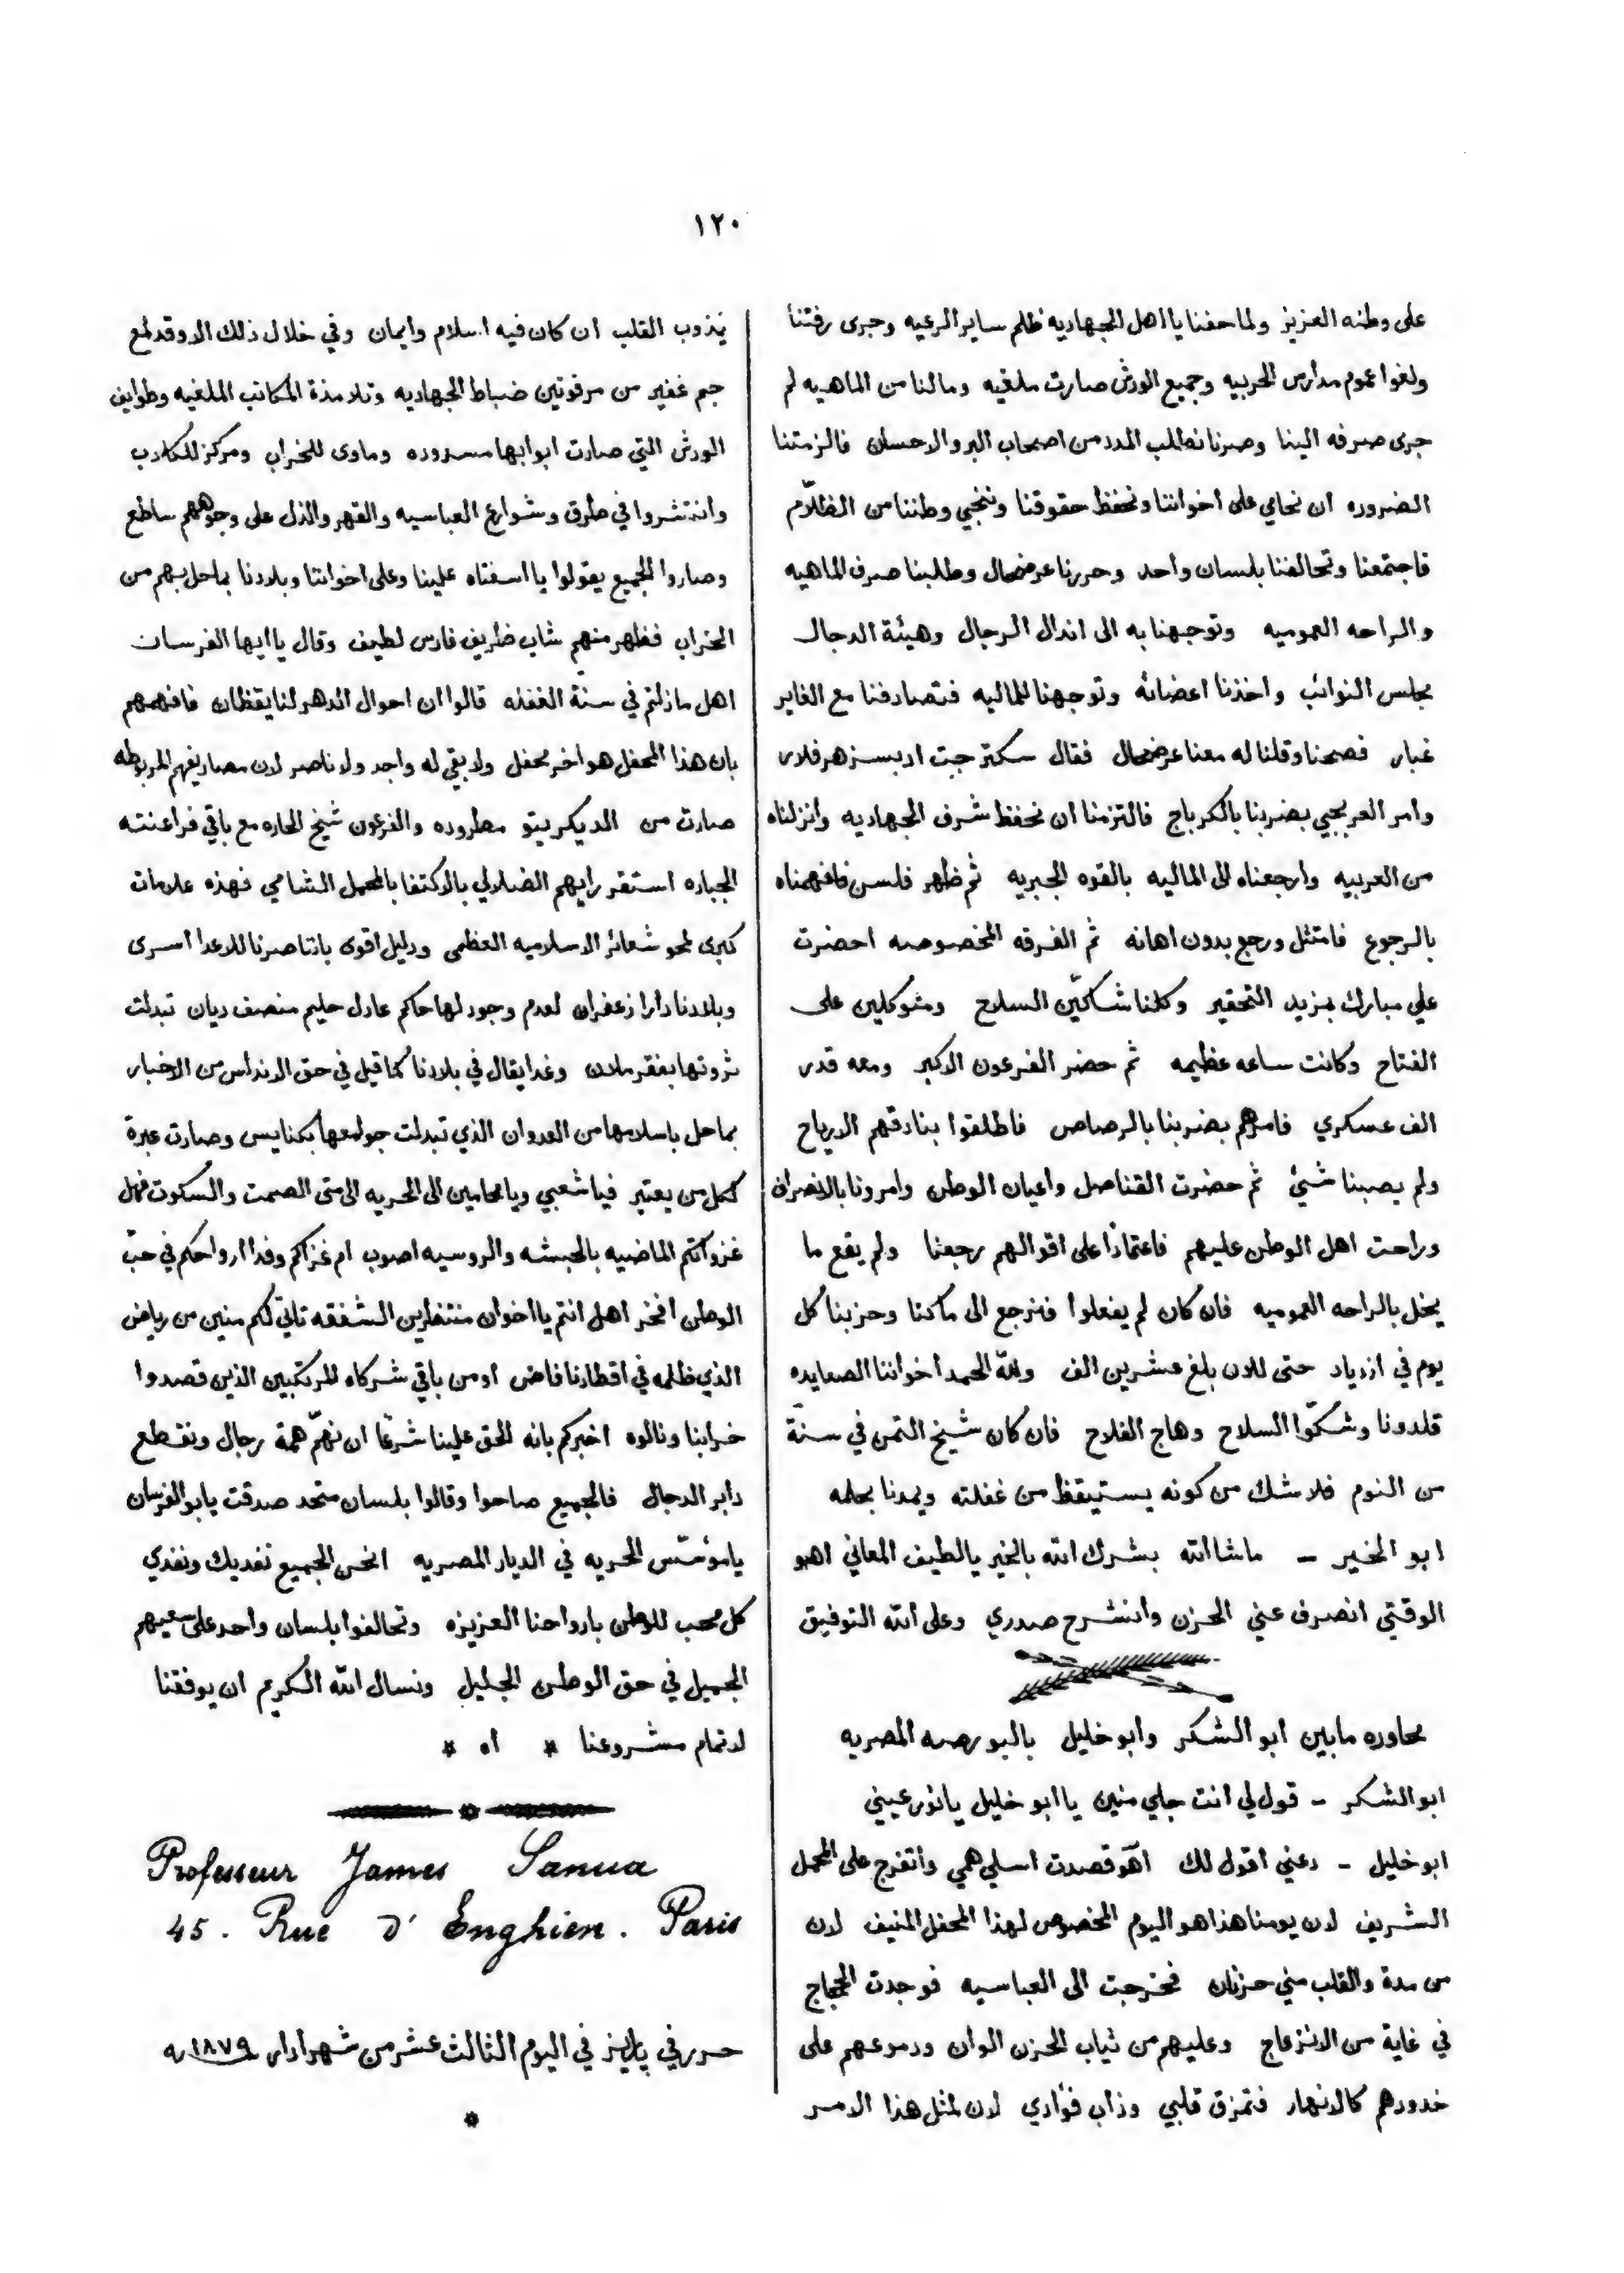 ١٢٠
على وطنه العزيز ولما حفنا يا اهل الجهاديه ظلم ساير الرعيه وجرى رفتنا
ولغوا عموم مدارس الحربيه وجميع الورش صارت ملغيه ومالنا من الماهيه لم
جرى صرفه الينا وصرنا نطلب المدد من اصحاب البر والاحسان فالزمتنا
الضروره ان نحامي على اخواننا ونحفظ حقوقنا وننجي وطننا من الظلّام
فاجتمعنا وتحالفنا بلسان واحد وحررنا عرضحال وطلبنا صرف الماهيه
والراحه العموميه وتوجهنا به الى اندال الرجال وهيئة الدجال
مجلس النوائب واخذنا اعضائه وتوجهنا للماليه فتصادفنا مع الغاير
غبار فصحنا وقلنا له معنا عرضحال فقال سكتر جبت ادبسز هرفلار
وامر العربجي بضربنا بالكرباج فالتزمنا ان نحفظ شرف الجهاديه وانزلناه
من العربيه وارجعناه الى الماليه بالقوه الجبريه ثم ظهر فلسن فافهمناه
بالرجوع فامتثل ورجع بدون اهانه ثم الفرقه المخصوصه احضرت
علي مبارك بمزيد التحقير وكلنا شاكّين السلاح ومتوكلين على
الفتاح وكانت ساعه عظيمه ثم حضر الفرعون الاكبر ومعه قدر
الف عسكري فامرهم بضربنا بالرصاص فاطلقوا بنادقهم الارياح
ولم يصبنا شئ ثم حضرت القناصل واعيان الوطن وامرونا بالانصراف
وراحت اهل الوطن عليهم فاعتمادًا على اقوالهم رجعنا ولم يقع ما
يخل بالراحه العموميه فان كان لم يفعلوا فنرجع الى ماكنا وحزبنا كل
يوم في ازدياد حتى للان بلغ عشرين الف ولله الحمد اخواننا الصعايده
قلدونا وشكّوا السلاح وهاج الفلاح فان كان شيخ التمن في سنة
من النوم فلا شك من كونه يستيقظ من غفلته ويمدنا بحلمه
ابو الخير – ماشا الله بشرك الله بالخير يا لطيف المعاني اهو
الوقتي انصرف عني الحزن وانشرح صدري وعلى الله التوفيق
محاوره مابين ابو الشكر وابو خليل بالبورصه المصريه
ابو الشكر – قول لي انت جاي منين يا ابو خليل يا نور عيني
ابو خليل – دعني اقول لك اهو قصدت اسلي همي واتفرج على المحمل
الشريف لان يومنا هذا هو اليوم المخصوص لهذا المحفل المنيف لان
من مدة والقلب مني حزنان فخرجت الى العباسيه فوجدت الحجاج
في غاية من الانزعاج وعليهم من ثياب الحزن الوان ودموعهم على
خدودهم كالانهار فتمزق قلبي وذاب فؤادي لان لمثل هذا الامر
يذوب القلب ان كان فيه اسلام وايمان وفي خلال ذلك الا وقد لمع
جم غفير من مرفوتين ضباط الجهاديه وتلامذة المكاتب الملغيه وطوايف
الورش التي صارت ابوابها مسدوده وماوى للخراب ومركز للكلاب
وانتشروا في طرق وشوارع العباسيه والقهر والذل على وجوههم ساطع
وصاروا الجميع يقولوا يا اسفتاه علينا وعلى اخواننا وبلادنا بماحل بهم من
الخراب فظهر منهم شاب ظريف فارس لطيف وقال يا ايها الفرسان
اهل مازلتم في سنة الغفله قالوا ان احوال الدهر لنا يقظان فافهمهم
بان هذا المحفل هو اخر محفل ولا بقي له واجد ولا ناصر لان مصاريفهم المربوطه
صارت من الديكريتو مطروده والفرعون شيخ الحاره مع باقي فراعنته
الجباره استقر رايهم الضلالي بالاكتفا بالمحمل الشامي فهذه علامات
كبرى لمحو شعائر الاسلاميه العظمى ودليل اقوى باننا صرنا للاعدا اسرى
وبلادنا دارا زعفران لعدم وجود لها حاكم عادل حليم منصف ديان تبدلت
ثروتها بفقر ملان وغدا يقال في بلادنا كما قيل في حق الاندلس من الاخبار
بماحل باسلامها من العدوان الذي تبدلت جوامعها بكنايس وصارت عبرة
لكل من يعتبر فيا شعبي ويا محامين الى الحريه الى متى الصمت والسكوت فهل
غزواتكم الماضيه بالحبشه والروسيه اصوب ام غزاكم وفدا ارواحكم في حبّ
الوطن افخر اهل انتم يا اخوان منتظرين الشفقه تاتي لكم منين من رياض
الذي ظلمه في اقطارنا فاض او من باقي شركاه المرتكبين الذين قصدوا
خرابنا ونالوه اخبركم بانه للحق علينا شرعًا ان نهمّ همة رجال ونقطع
دابر الدجال فالجميع صاحوا وقالوا بلسان متحد صدقت يا بو الفرسان
يا مؤسّس الحريه في الديار المصريه انحن الجميع نفديك ونفدي
كل محب للوطن بارواحنا العزيزه وتحالفوا بلسان واحد على سعيهم
الجميل في حق الوطن الجليل ونسال الله الكريم ان يوفقنا
لاتمام مشروعنا * اه *
Professeur James Sanua
45. Rue d'Enghien. Paris
حرر في باريز في اليوم الثالث عشر من شهر ادار ١٨٧٩ سنه
*